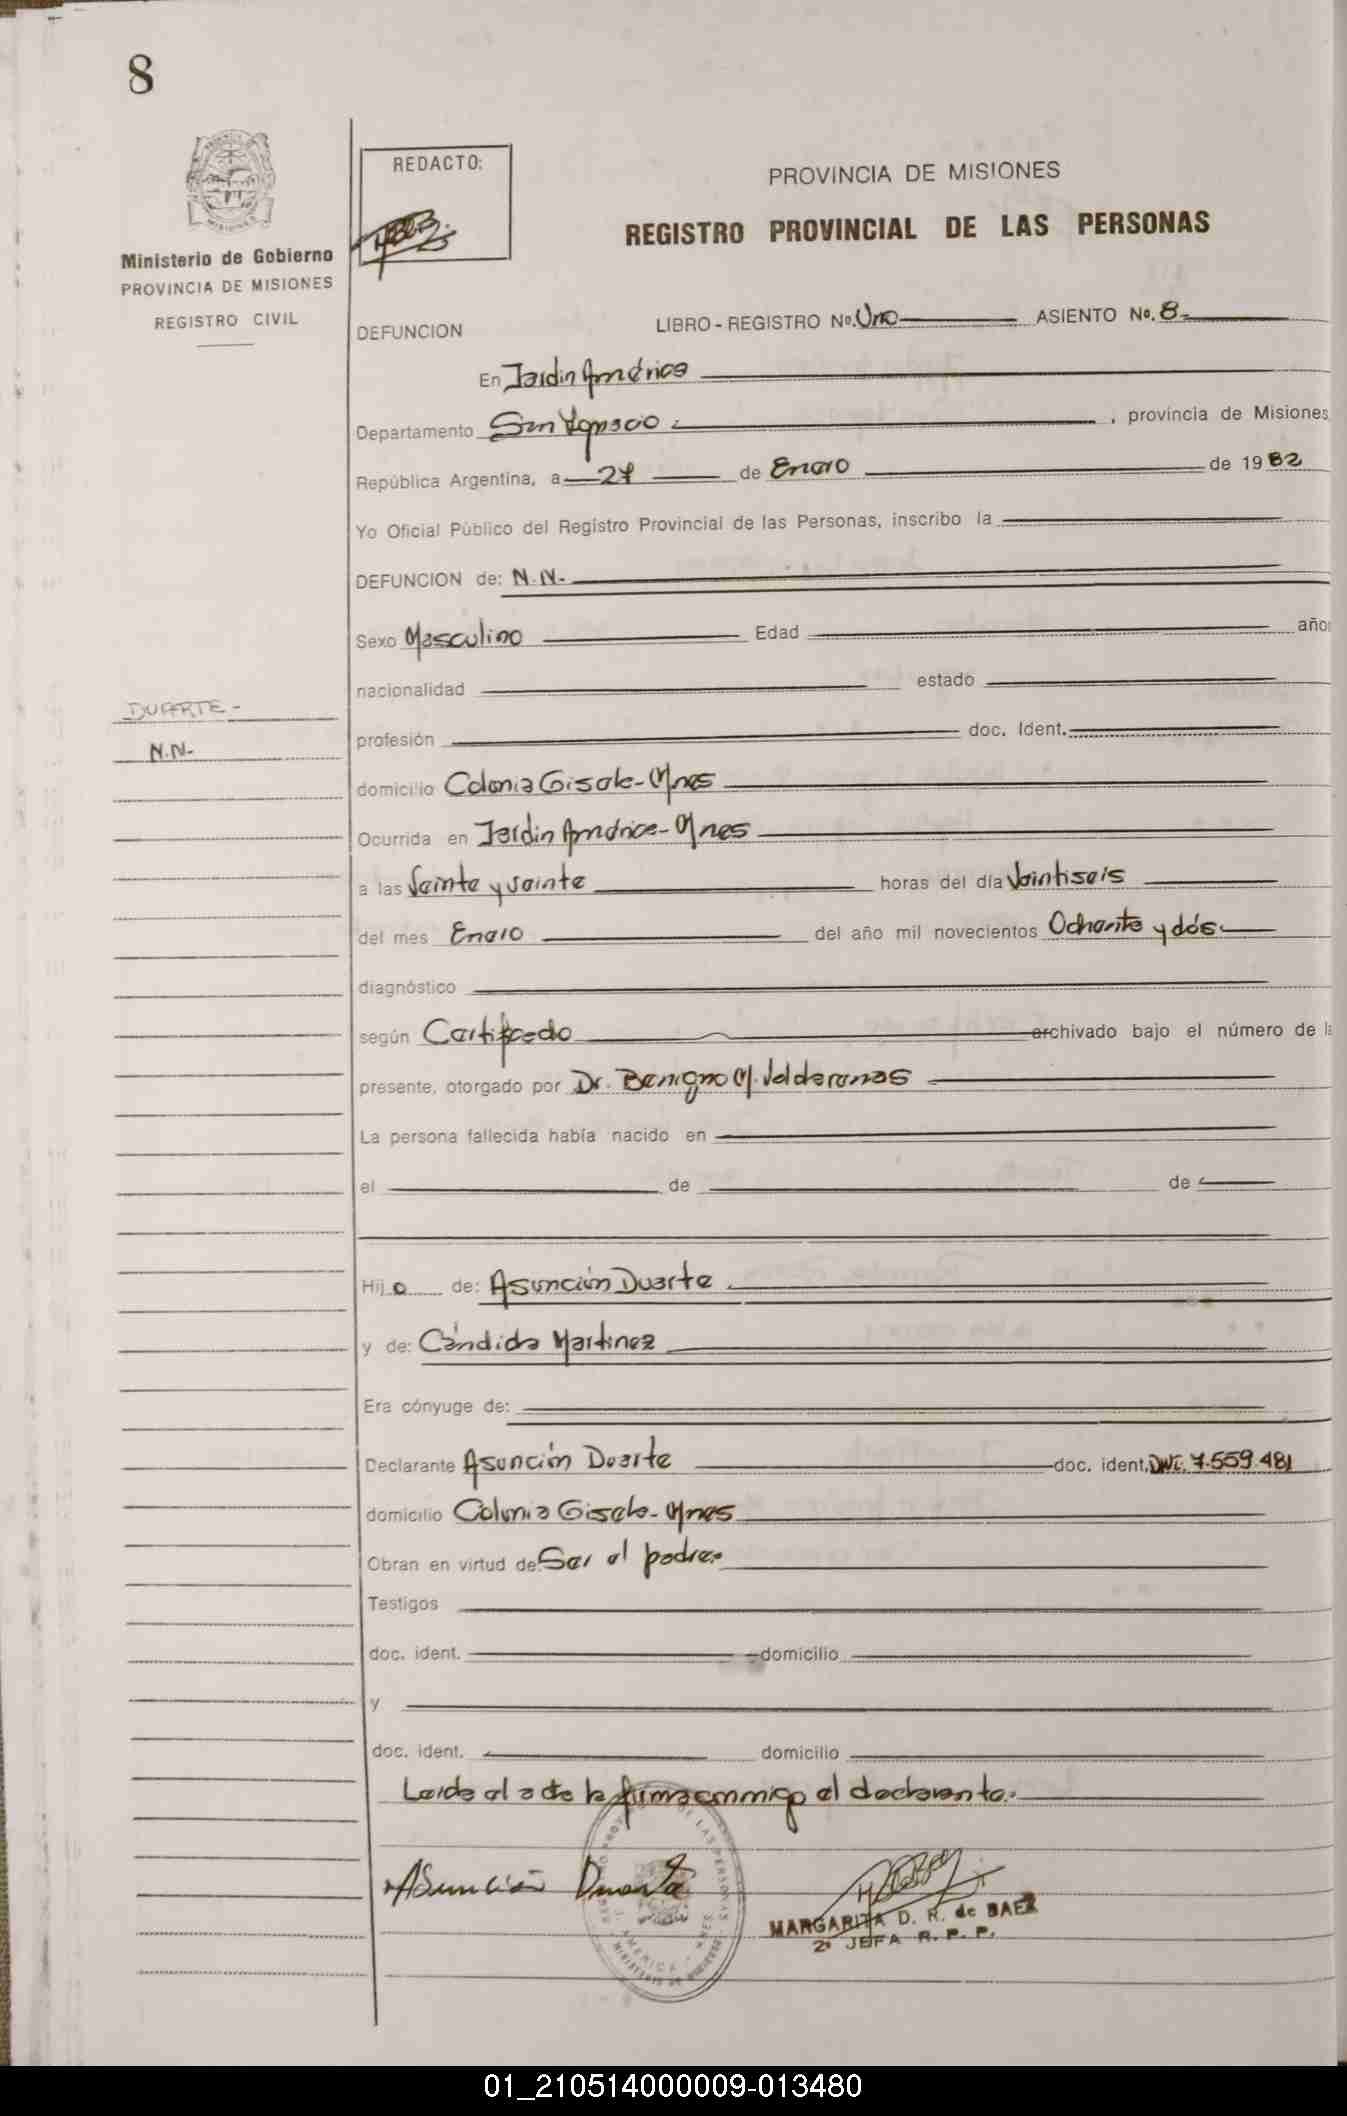 8
REDACTO:
PROVINCIA DE MISIONES
REGISTRO PROVINCIAL DE LAS PERSONAS
Ministerio de Gobierno
PROVINCIA DE MISIONES
REGISTRO CIVIL
DEFUNCION LIBRO-REGISTRO No. Uno ASIENTO No. 8
En Jardín América
Departamento San Ignacio, provincia de Misiones
República Argentina, a 27 de Enero de 1982
Yo Oficial Público del Registro Provincial de las Personas, inscribo la
DEFUNCION de: N.N.
Sexo Masculino Edad año
nacionalidad estado
DUARTE-
N.N-
profesión doc. Ident.
domicilio Colonia Gisela-Mnes
Ocurrida en Jardín América-Mnes
a las Veinte y veinte horas del día Veintiseis
del mes Enero del año mil novecientos Ochenta y dós
diagnóstico
según Certificado archivado bajo el número de la
presente, otorgado por Dr. Benigno M. Valderenas
La persona fallecida había nacido en
el de de
Hijo de: Asunción Duarte
y de: Cándida Martinez
Era cónyuge de:
Declarante Asunción Duarte doc. ident. DNI. 7.559.481
domicilio Colonia Gisela-Mnes
Obran en virtud de: Ser el padre.
Testigos
doc. ident. domicilio
y
doc. ident. domicilio
Leída el acta la firma conmigo el declarante.
Asunción Duarte
MARGARITA D. R. de BAEZ
2ª JEFA R. P. P.
01_210514000009-013480